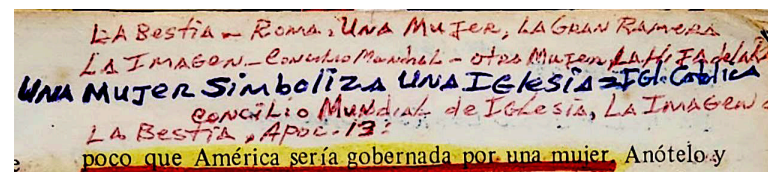 LA Bestia - Roma, Una Mujer, LA Gran Ramera
LA Imagen - Concilio Mundial - otra Mujer, LA HIJA de la
UNA MUJER SimboLizA UNA IGLesia = IGL. Catolica
Concilio Mundial de Iglesia, LA Imagen
LA Bestia, Apoc. 13:
poco que América sería gobernada por una mujer. Anótelo y